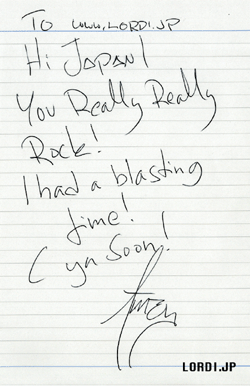 To www.LORDI.JP
Hi Japan!
You Really Really
Rock!
I had a blasting
time!
C ya Soon!
LORDI.JP